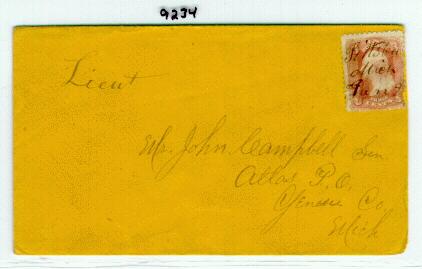 9234
Lieut
Mich
Mr. John Campbell Sen.
Atlas P.O.
Genesee Co
Mich